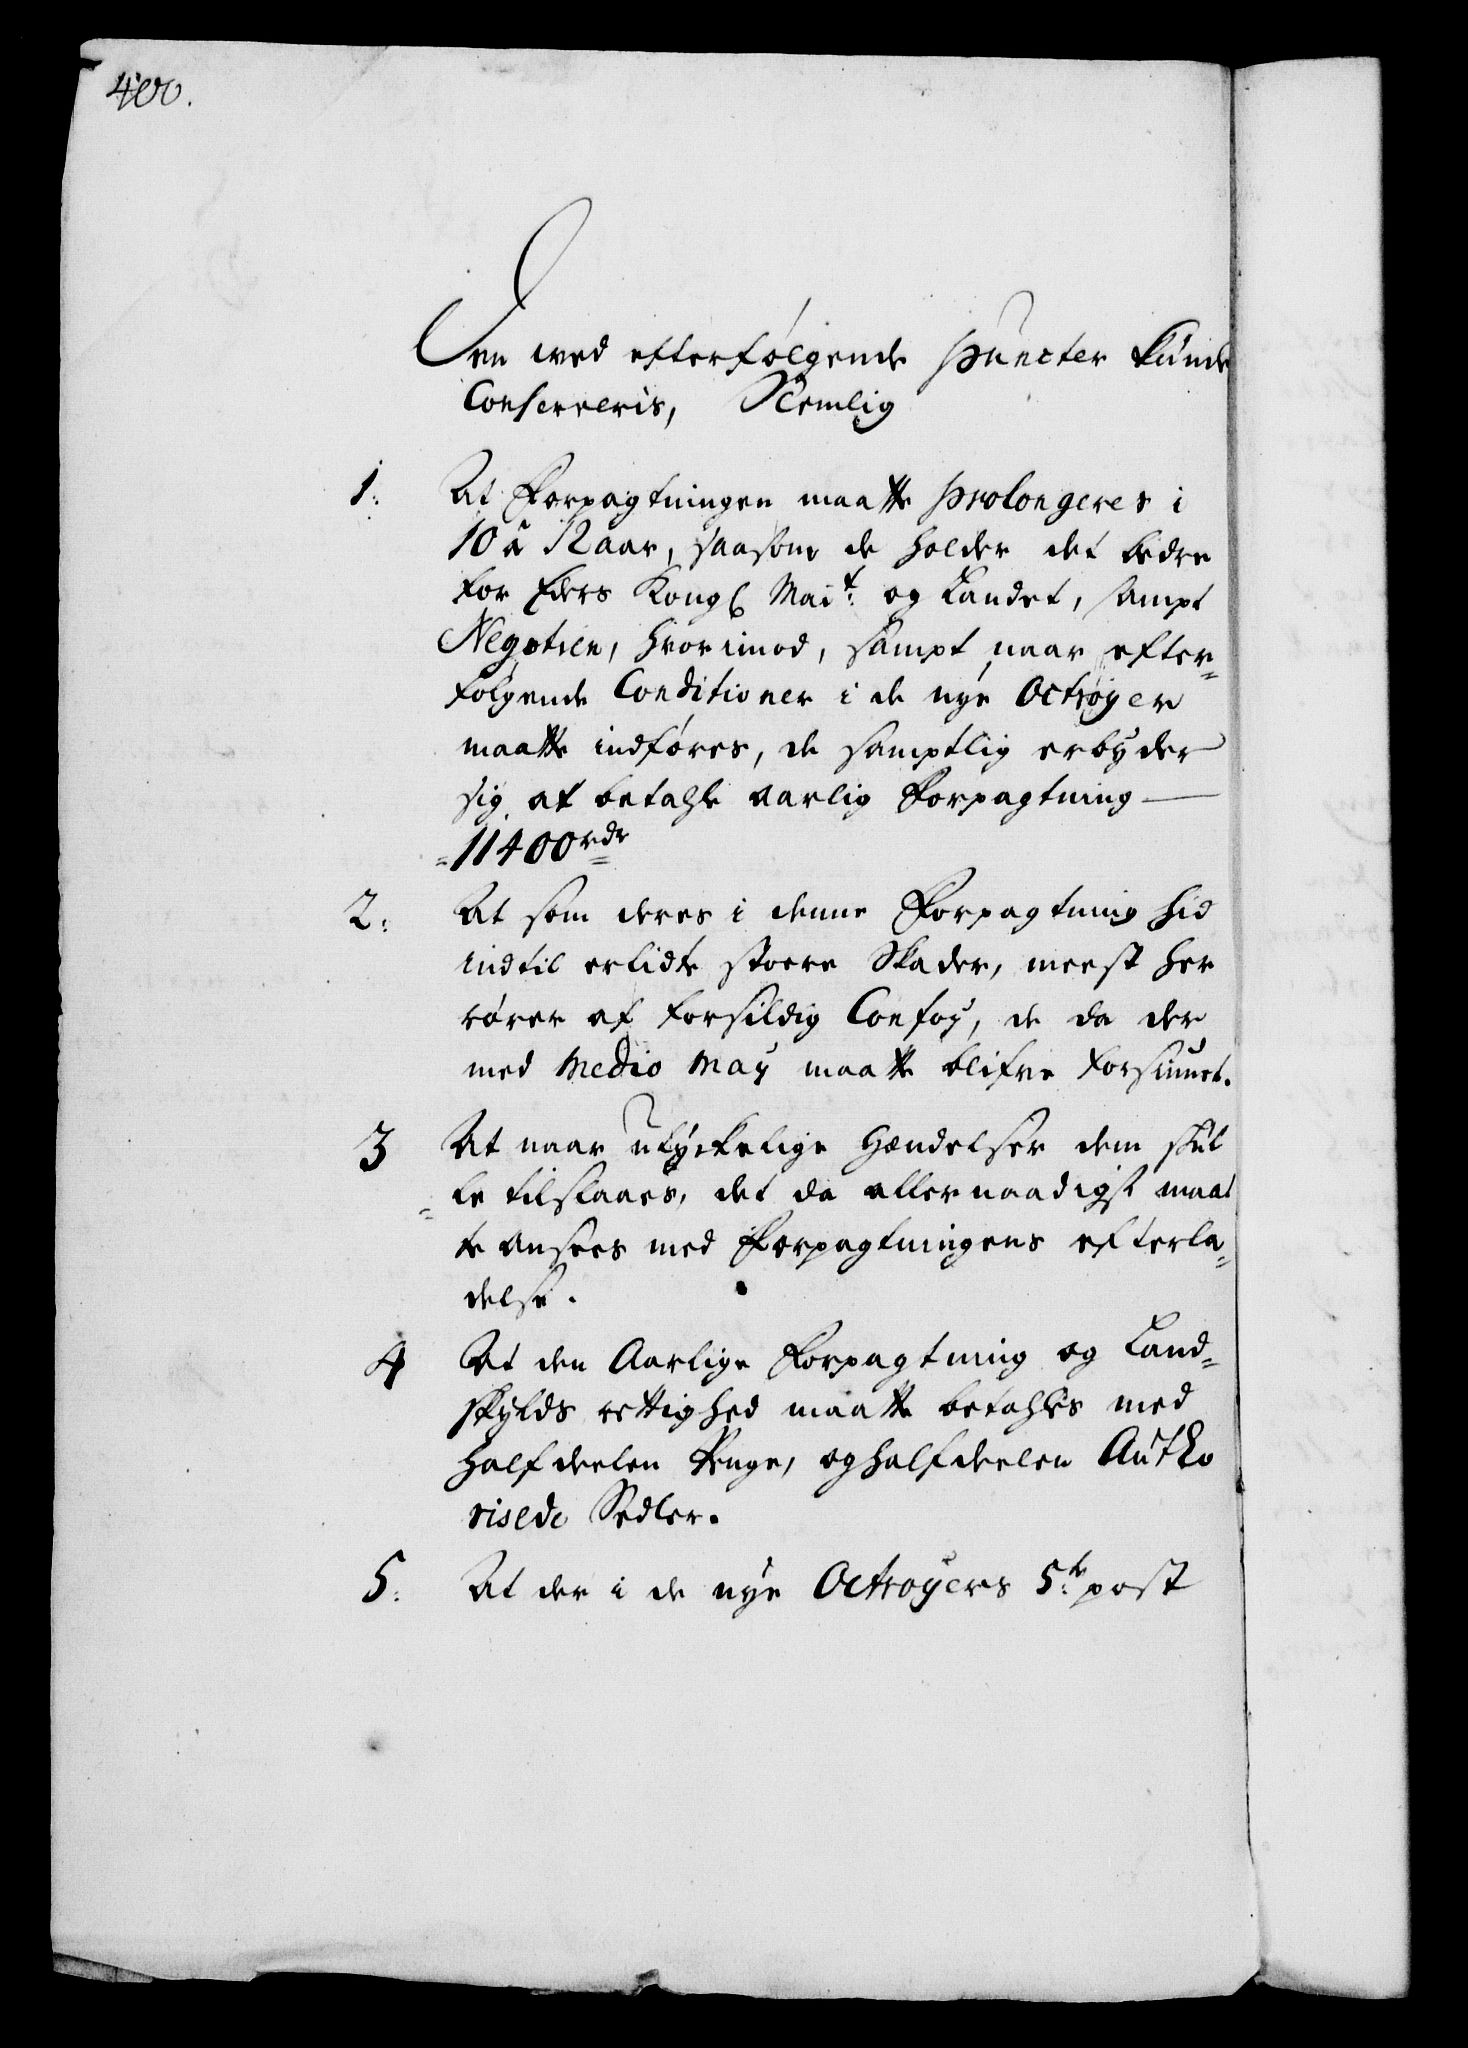 4to.
Den wed efterfølgende Puncter kunde
Conserveris, Nemlig
1. At Forpagtningen maatte prolongeres i
10 â 12 aar, saasom de holder det bedre
for Eders Kongl Mait: og Landet, sampt
Negotien, hvorimod, sampt naar efter=
følgende Conditioner i de nye Octroyer
maatte indføres, de samptlig erbyder
sig at betahle aarlig Forpagtning —
=11400rdr
2: At som deres i denne Forpagtning hid
indtil erlidte stoere Skader, meest her
rører af forsildig Confoy, de da der
med Medio May maatte blifve forsiunet.
3 At naar ulyckelige Hændelser dem skul
=le tilslaaes, det da allernaadigst maat
te ansees med Forpagtningens efterla=
delse.
4 At den Aarlige Forpagtning og Land=
skylds rettighed maatte betahles med
halfdeelen Penge, og halfdeelen Autho
risede Sedler.
5: At der i de nye Octroyers 5:te post